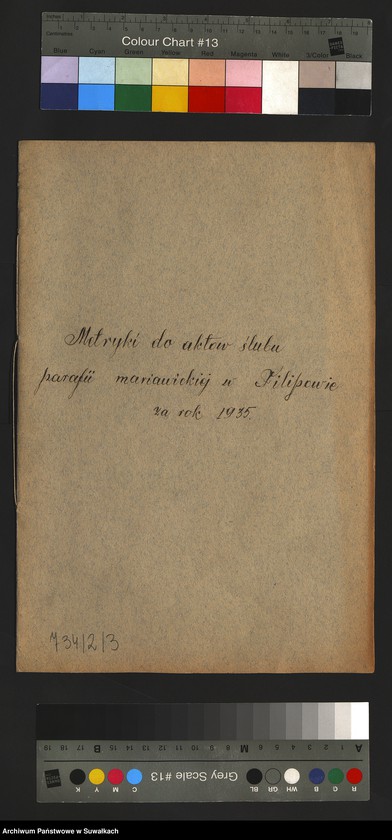 Inches
Centimetres
Colour Chart #13
Blue Cyan Green Yellow Red Magenta White 3/Color Black
Metryki do aktów ślubu
parafii mariawickiej w Filipowie
za rok 1935.
734/2/3
19 18 17 16 15 B 14 13 12 11 10 9 8 7 M 6 5 4 3 2 A 1
Grey Scale #13
R G B WH GR BL C M Y K
Archiwum Państwowe w Suwałkach